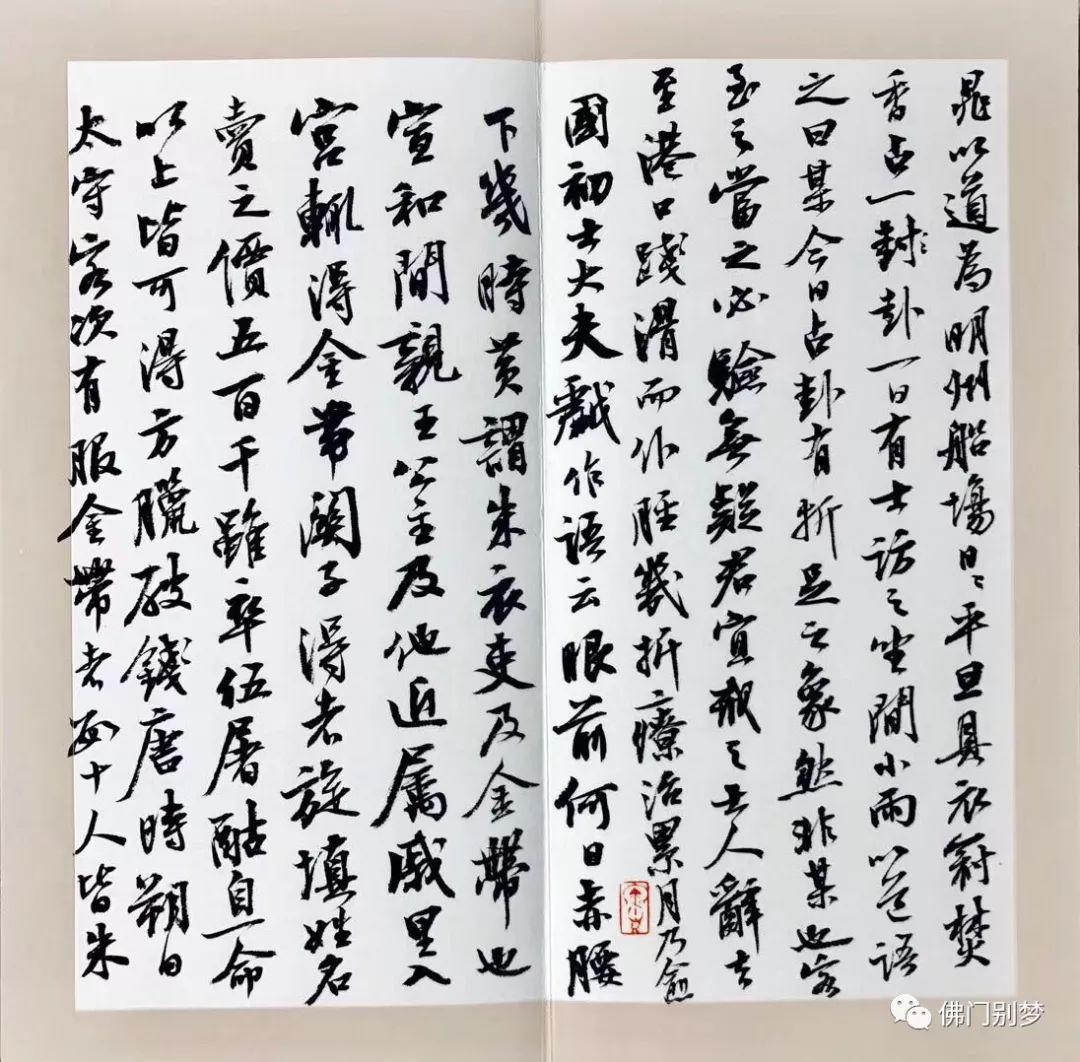 晁以道為明州船場日〻平旦具衣冠焚
香占一封〻卦一日有士訪之坐間小雨以道語
之曰某今日占卦有折足之象然非某也客
至之當之必驗無疑君宜戒之士人辭去
至港口踐滑而仆脛幾折療治累月乃愈
國初士大夫戲作語云眼前何日赤腰
下幾時黃謂朱衣吏及金帶也
宣和間親王公主及他近屬戚里入
宮輒得金帶關子得者旋填姓名
賣之價五百千雖卒伍屠酤自一命
以上皆可得方臘破錢唐時朔日
太守客次有服金帶者數十人皆朱
佛门别梦